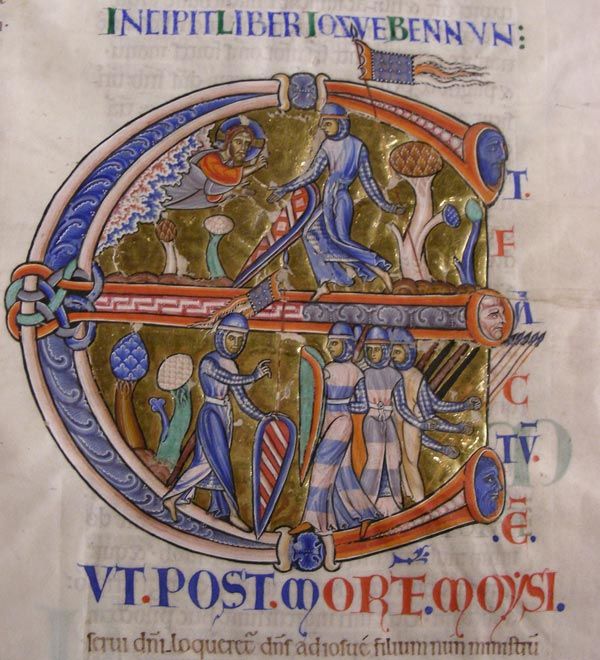 INCIPIT LIBER IOSVE BENNVN:
E
T.
F
A
C
TV̄.
.Ē.
VT. POST. MORTĒ. MOYSI.
serui dn̄i. loqueret᷑ dn̄s ad iosuē filium nun ministrū